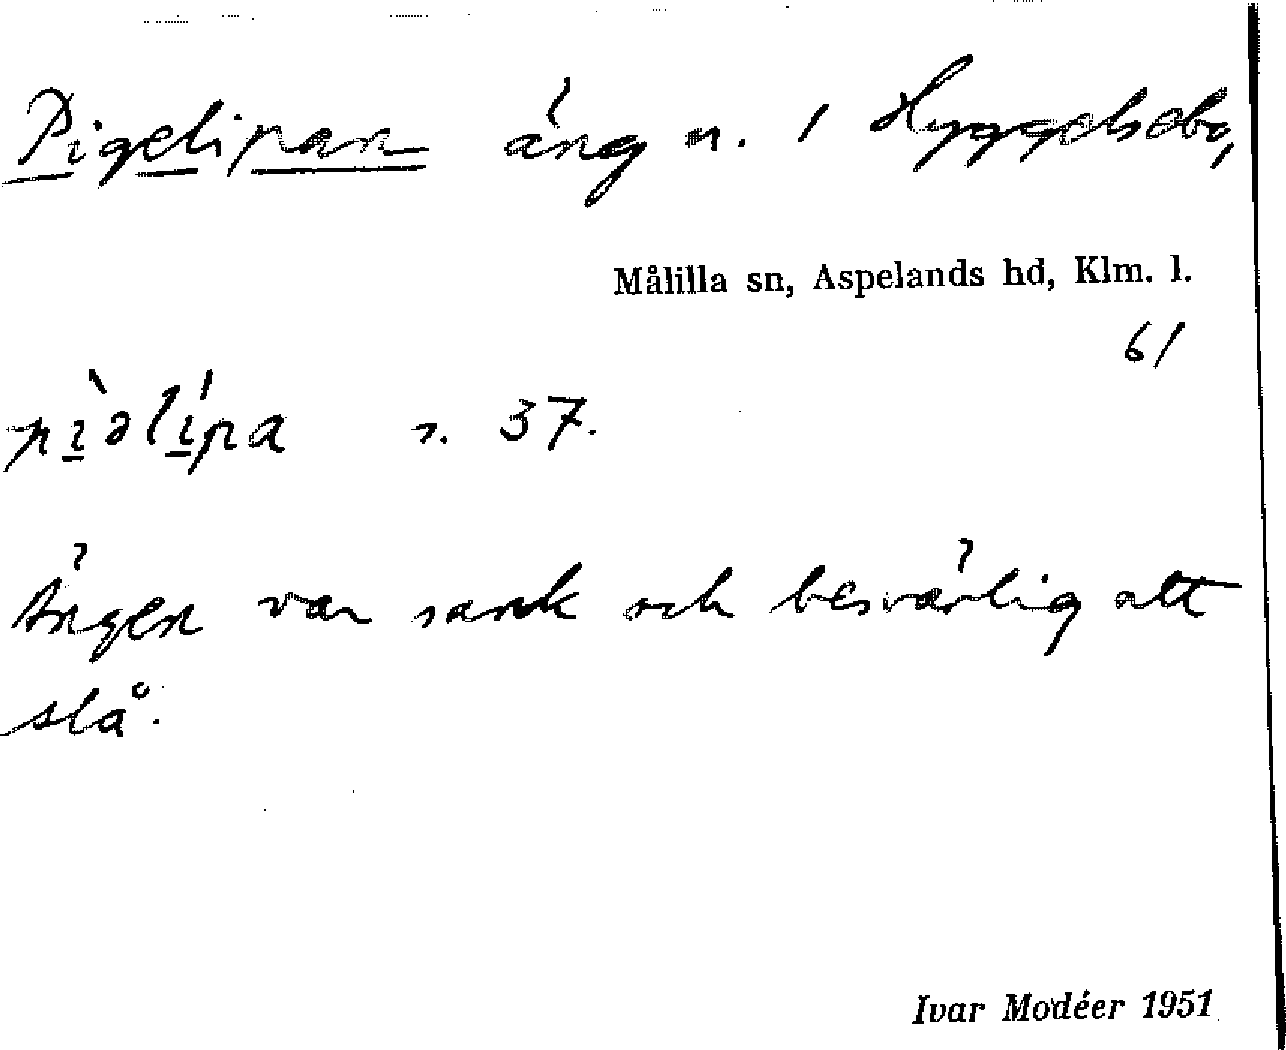 Pigelipan äng n. / Hyggelsebo,
Målilla sn, Aspelands hd, Klm. l.
61
pìəlípa s. 37.
Ängen var sank och besvärlig att
slå.
Ivar Modéer 1951